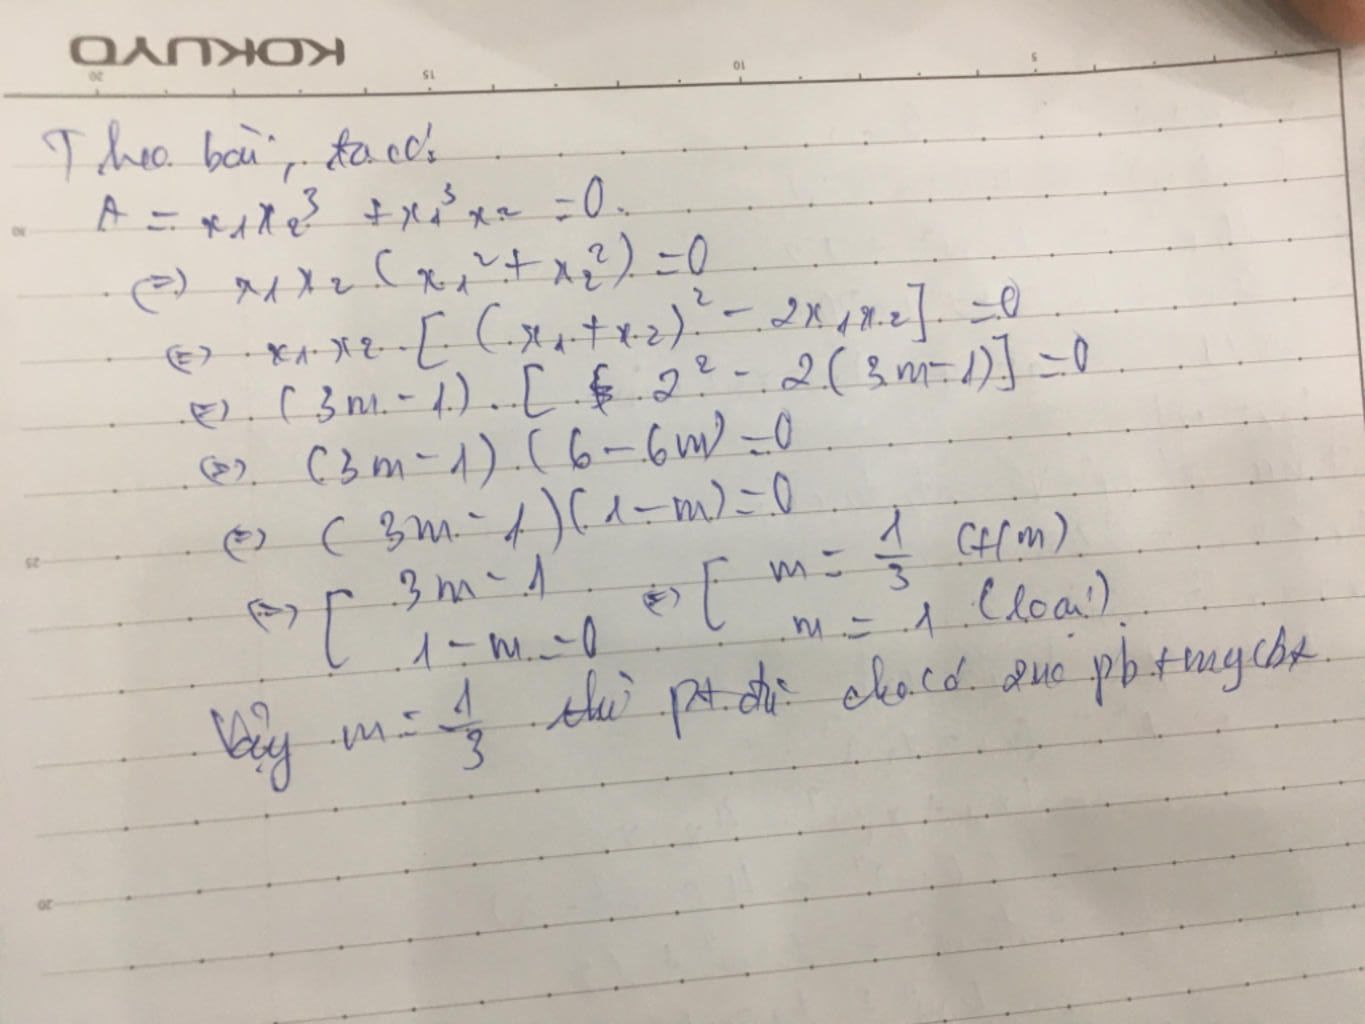 KOKUYO
20 15 10 5
Theo bài, ta có:
A = x₁x₂³ + x₁³x₂ = 0.
30
(=) x₁x₂ (x₁² + x₂²) = 0
(=) x₁.x₂ [(x₁ + x₂)² - 2x₁x₂] = 0
(=) (3m - 1). [ 2² - 2(3m - 1)] = 0
(=) (3m - 1).(6 - 6m) = 0
(=) (3m - 1)(1 - m) = 0
25
(=) [ 3m - 1 (=) [ m = 1/3 (t/m)
1 - m = 0 m = 1 (loại)
Vậy m = 1/3 thì pt đã cho có 2 no pb t/m ycbt
20